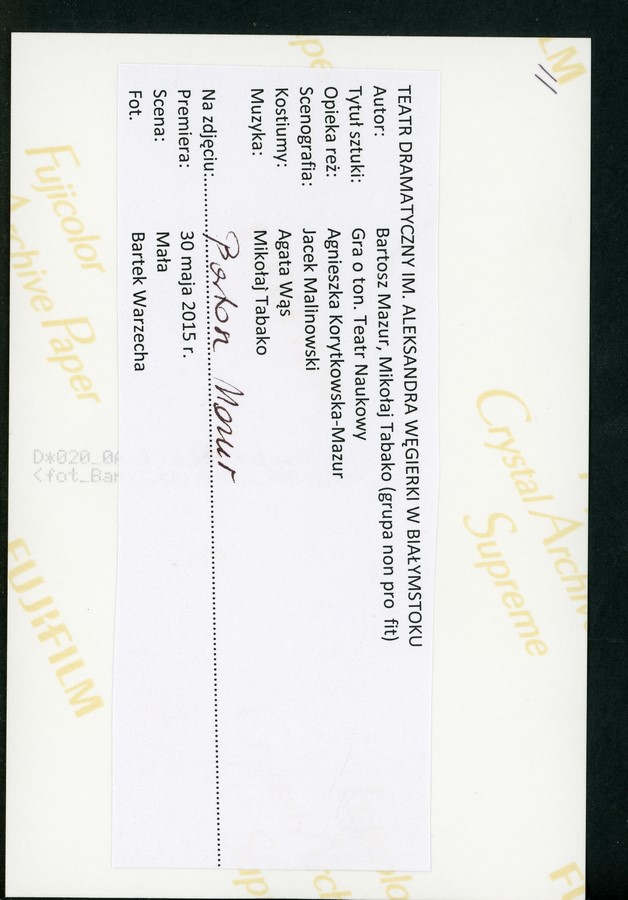 TEATR DRAMATYCZNY IM. ALEKSANDRA WĘGIERKI W BIAŁYMSTOKU
Autor: Bartosz Mazur, Mikołaj Tabako (grupa non pro fit)
Tytuł sztuki: Gra o ton. Teatr Naukowy
Opieka reż: Agnieszka Korytkowska-Mazur
Scenografia: Jacek Malinowski
Kostiumy: Agata Wąs
Muzyka: Mikołaj Tabako
Na zdjęciu: Mazur
Premiera: 30 maja 2015 r.
Scena: Mała
Fot. Bartek Warzecha
Fujicolor
Archive Paper
FUJIFILM
Crystal Archive
Supreme
D*020_0
<fot_Bar